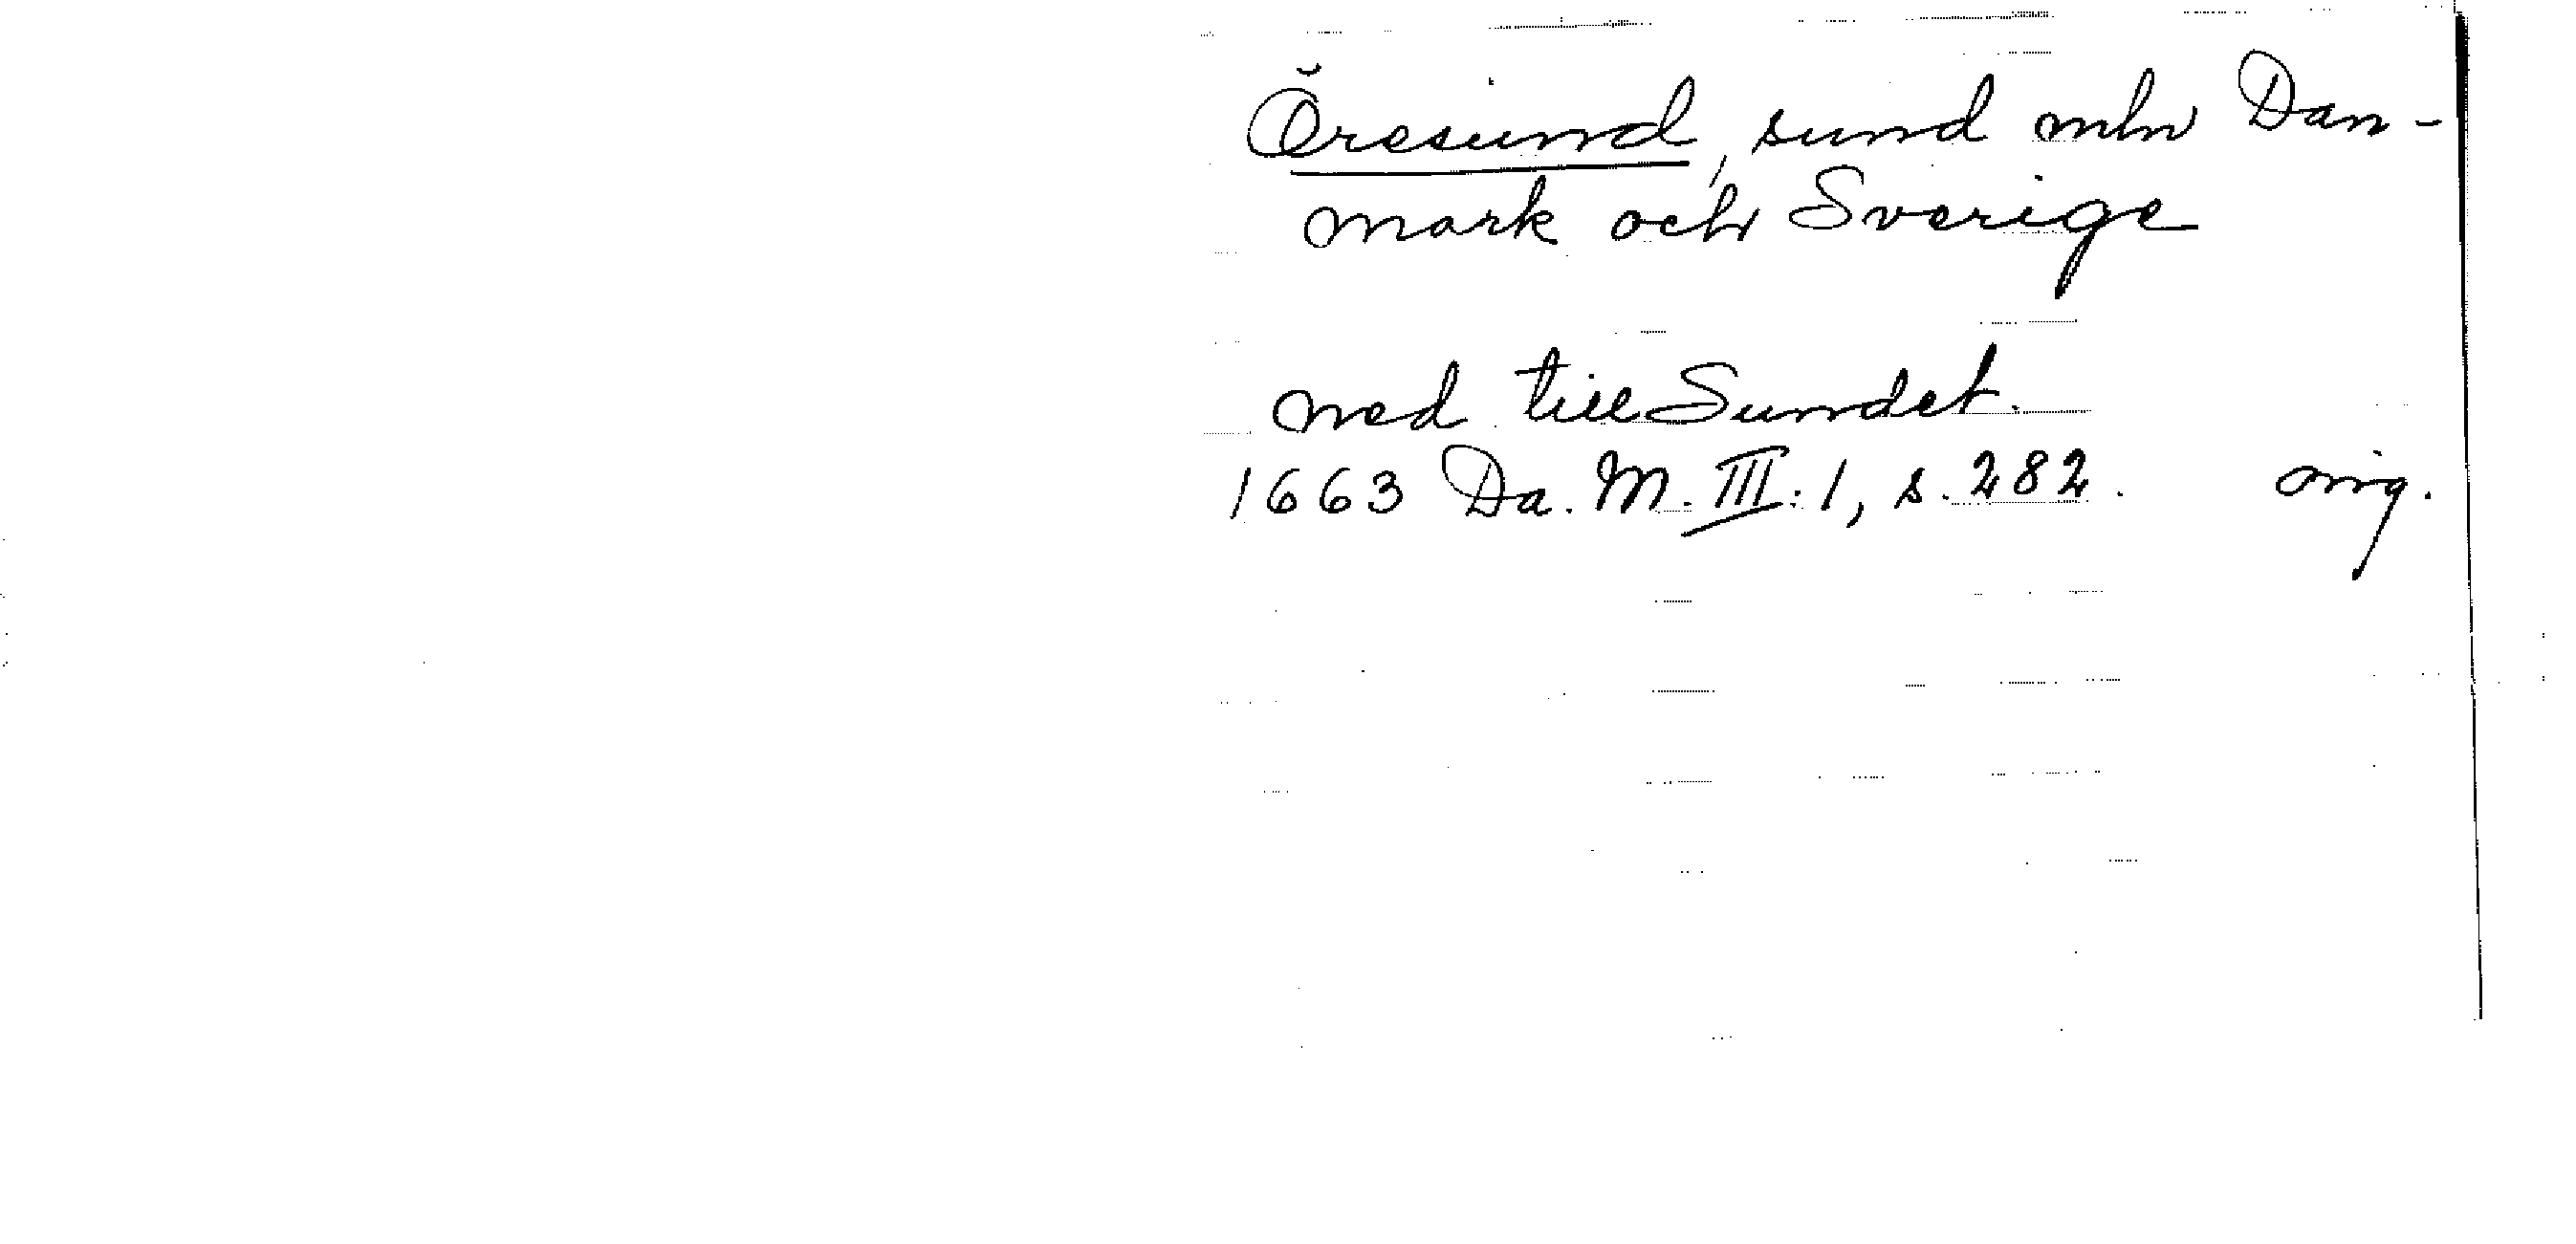 Öresund, sund mln Dan-
mark och Sverige
ned till Sundet.
1663 Da. M. III: 1, s. 282. orig.